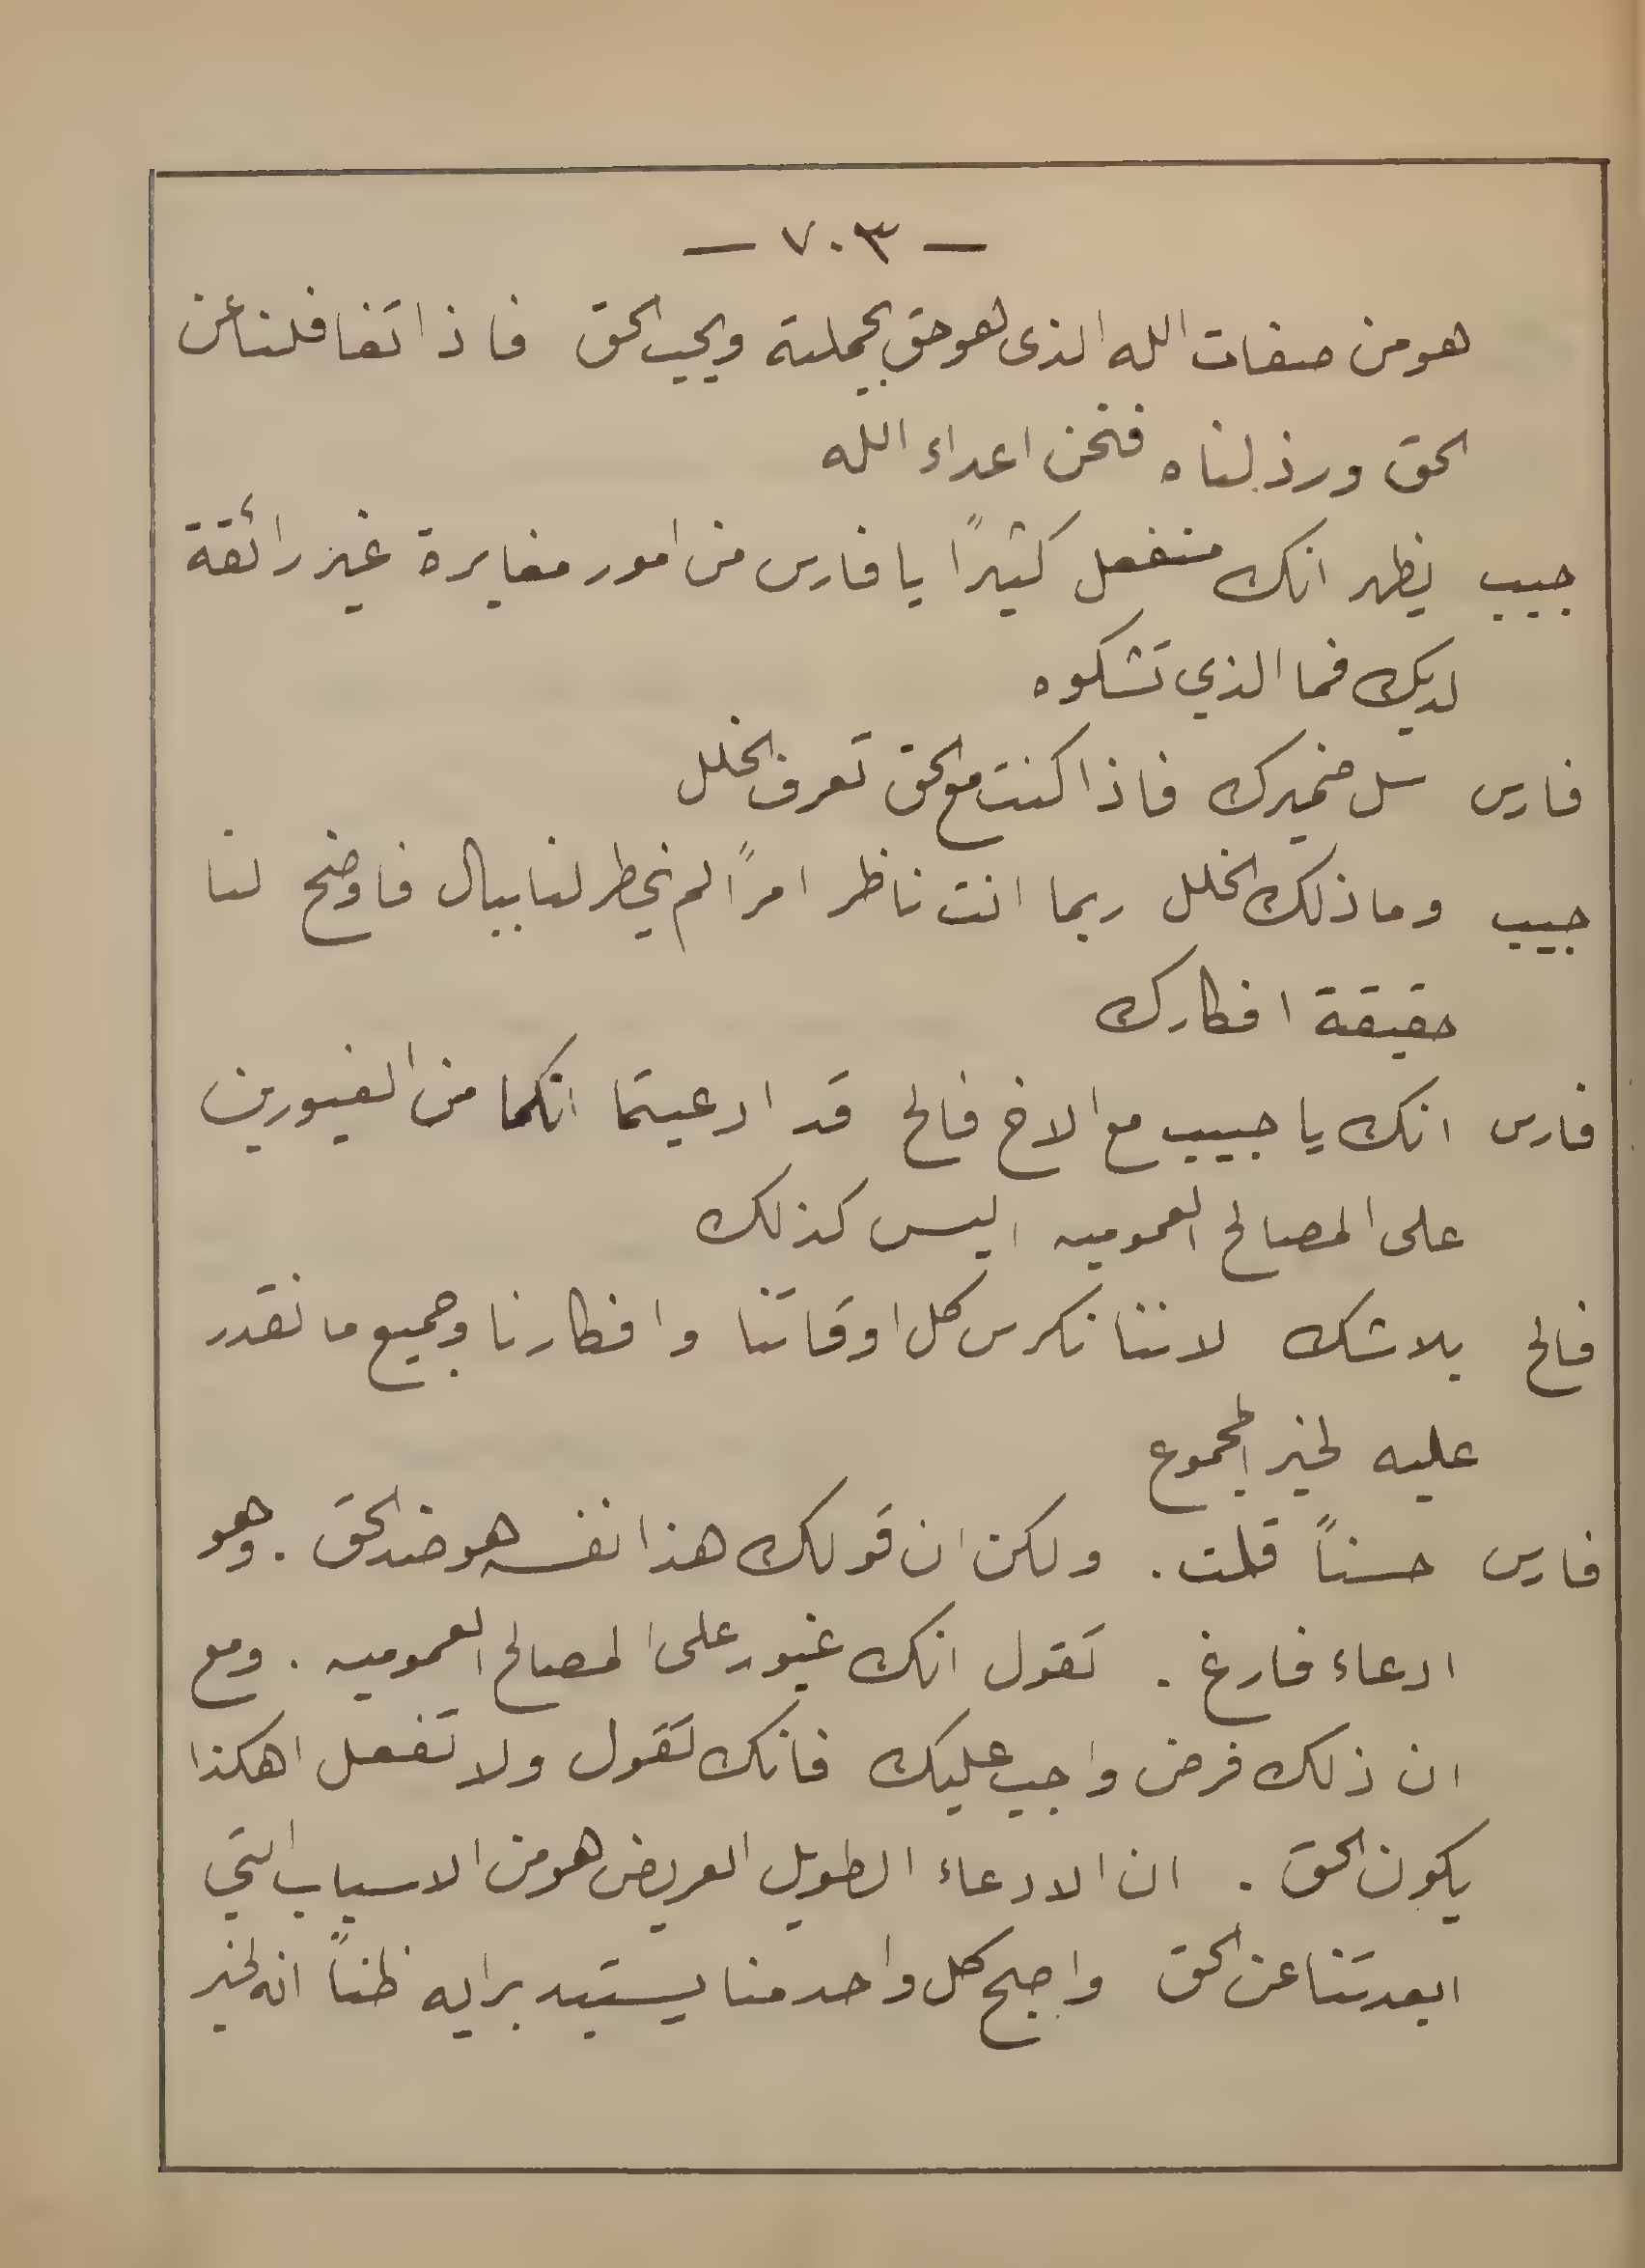 — ٧٠٣ —
هو من صفات الله الذى هو حق بجملته ويحب الحق فاذا تغافلنا عن
الحق ورذلناه فنحن اعداء الله
حبيب يظهر انك منفعل كثيرًا يا فارس من امور مغايرة غير رائقة
لديك فما الذي تشكوه
فارس سل ضميرك فاذا كنت مع الحق تعرف الخلل
حبيب وما ذلك الخلل ربما انت ناظر امرًا لم يخطر لنا ببال فاوضح لنا
حقيقة افكارك
فارس انك يا حبيب مع الاخ فالح قد ادعيتما انكما من الغيورين
على المصالح العموميه اليس كذلك
فالح بلا شك لاننا نكرس كل اوقاتنا وافكارنا وجميع ما نقدر
عليه لخير المجموع
فارس حسناً قلت. ولكن ان قولك هذا نفسه هو ضد الحق. وهو
ادعاء فارغ. تقول انك غيور على المصالح العموميه. ومع
ان ذلك فرض واجب عليك فانك تقول ولا تفعل اهكذا
يكون الحق. ان الادعاء الطويل العريض هو من الاسباب التي
ابعدتنا عن الحق واصبح كل واحد منا يستبد برايه ظناً انه لخير